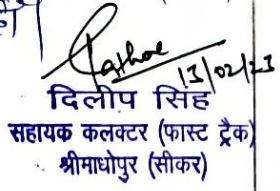 हो
Rathore
13/02/23
दिलीप सिंह
सहायक कलक्टर (फास्ट ट्रैक)
श्रीमाधोपुर (सीकर)